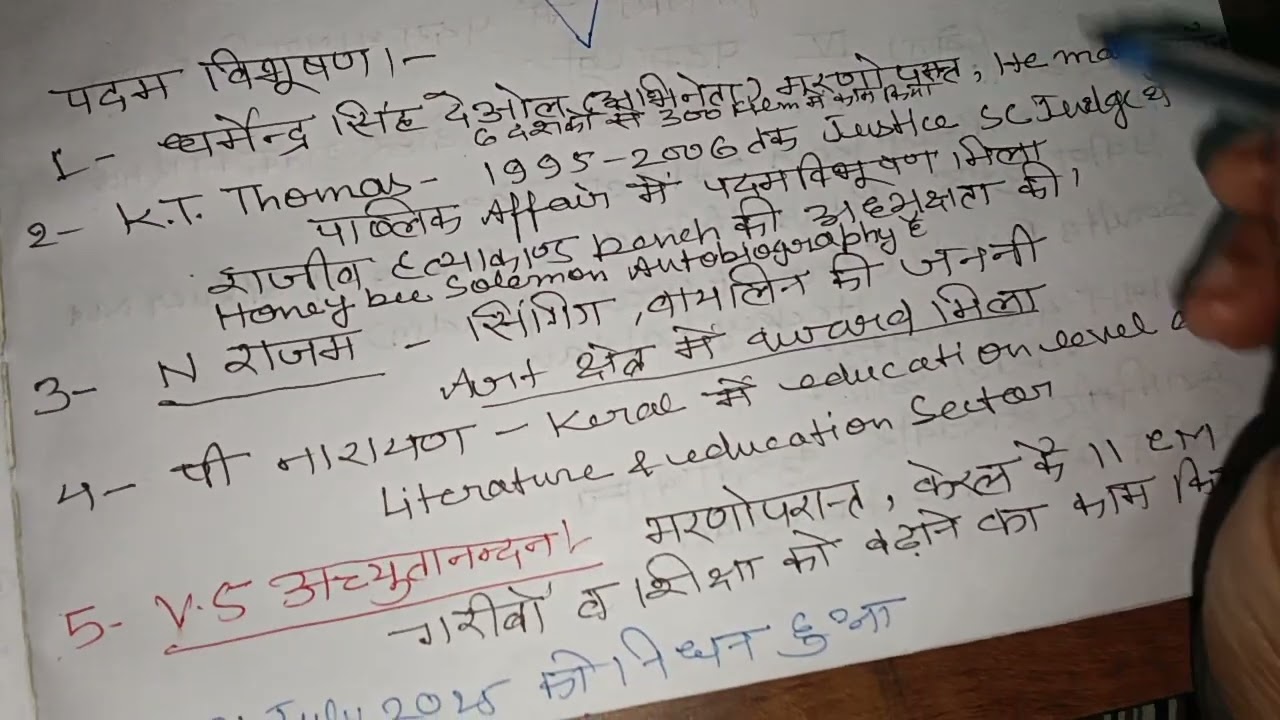 पदम विभूषण।-
1- धर्मेन्द्र सिंह देओल (अभिनेता) मरणोपरान्त, Hema
6 दशको से 300 film में काम किया
2- K.T. Thomas - 1995-2006 तक Justice SC Judge थे
पाब्लिक Affair में पदमविभूषण मिला
राजीव हत्याकाण्ड bench की अध्यक्षता की।
Honey bee Solemon Autobiography है
3- N राजम - सिंगिग, वायलिन की जननी
Art क्षेत्र में award मिला
4- पी नारायण - Keral में education level
Literature & education Sector
5- V.S अच्युतानन्दन।- मरणोपरान्त, केरल के 11 CM
गरीबों व शिक्षा को बढ़ाने का काम
July 2025 को निधन हुआ